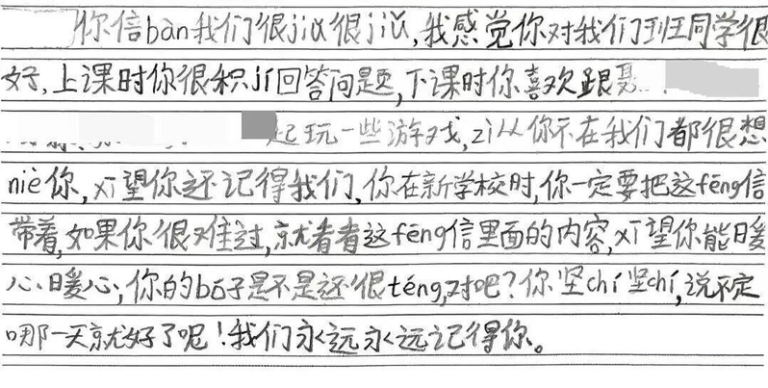 你信bàn我们很jiǔ很jiǔ,我感觉你对我们班同学很
好,上课时你很积jí回答问题,下课时你喜欢跟聂
起玩一些游戏,zì从你不在我们都很想
niè你,xī望你还记得我们,你在新学校时,你一定要把这fēng信
带着,如果你很难过,就看看这fēng信里面的内容,xī望你能暖
心暖心,你的bó子是不是还很téng,对吧?你坚chí坚chí,说不定
哪一天就好了呢!我们永远永远记得你。